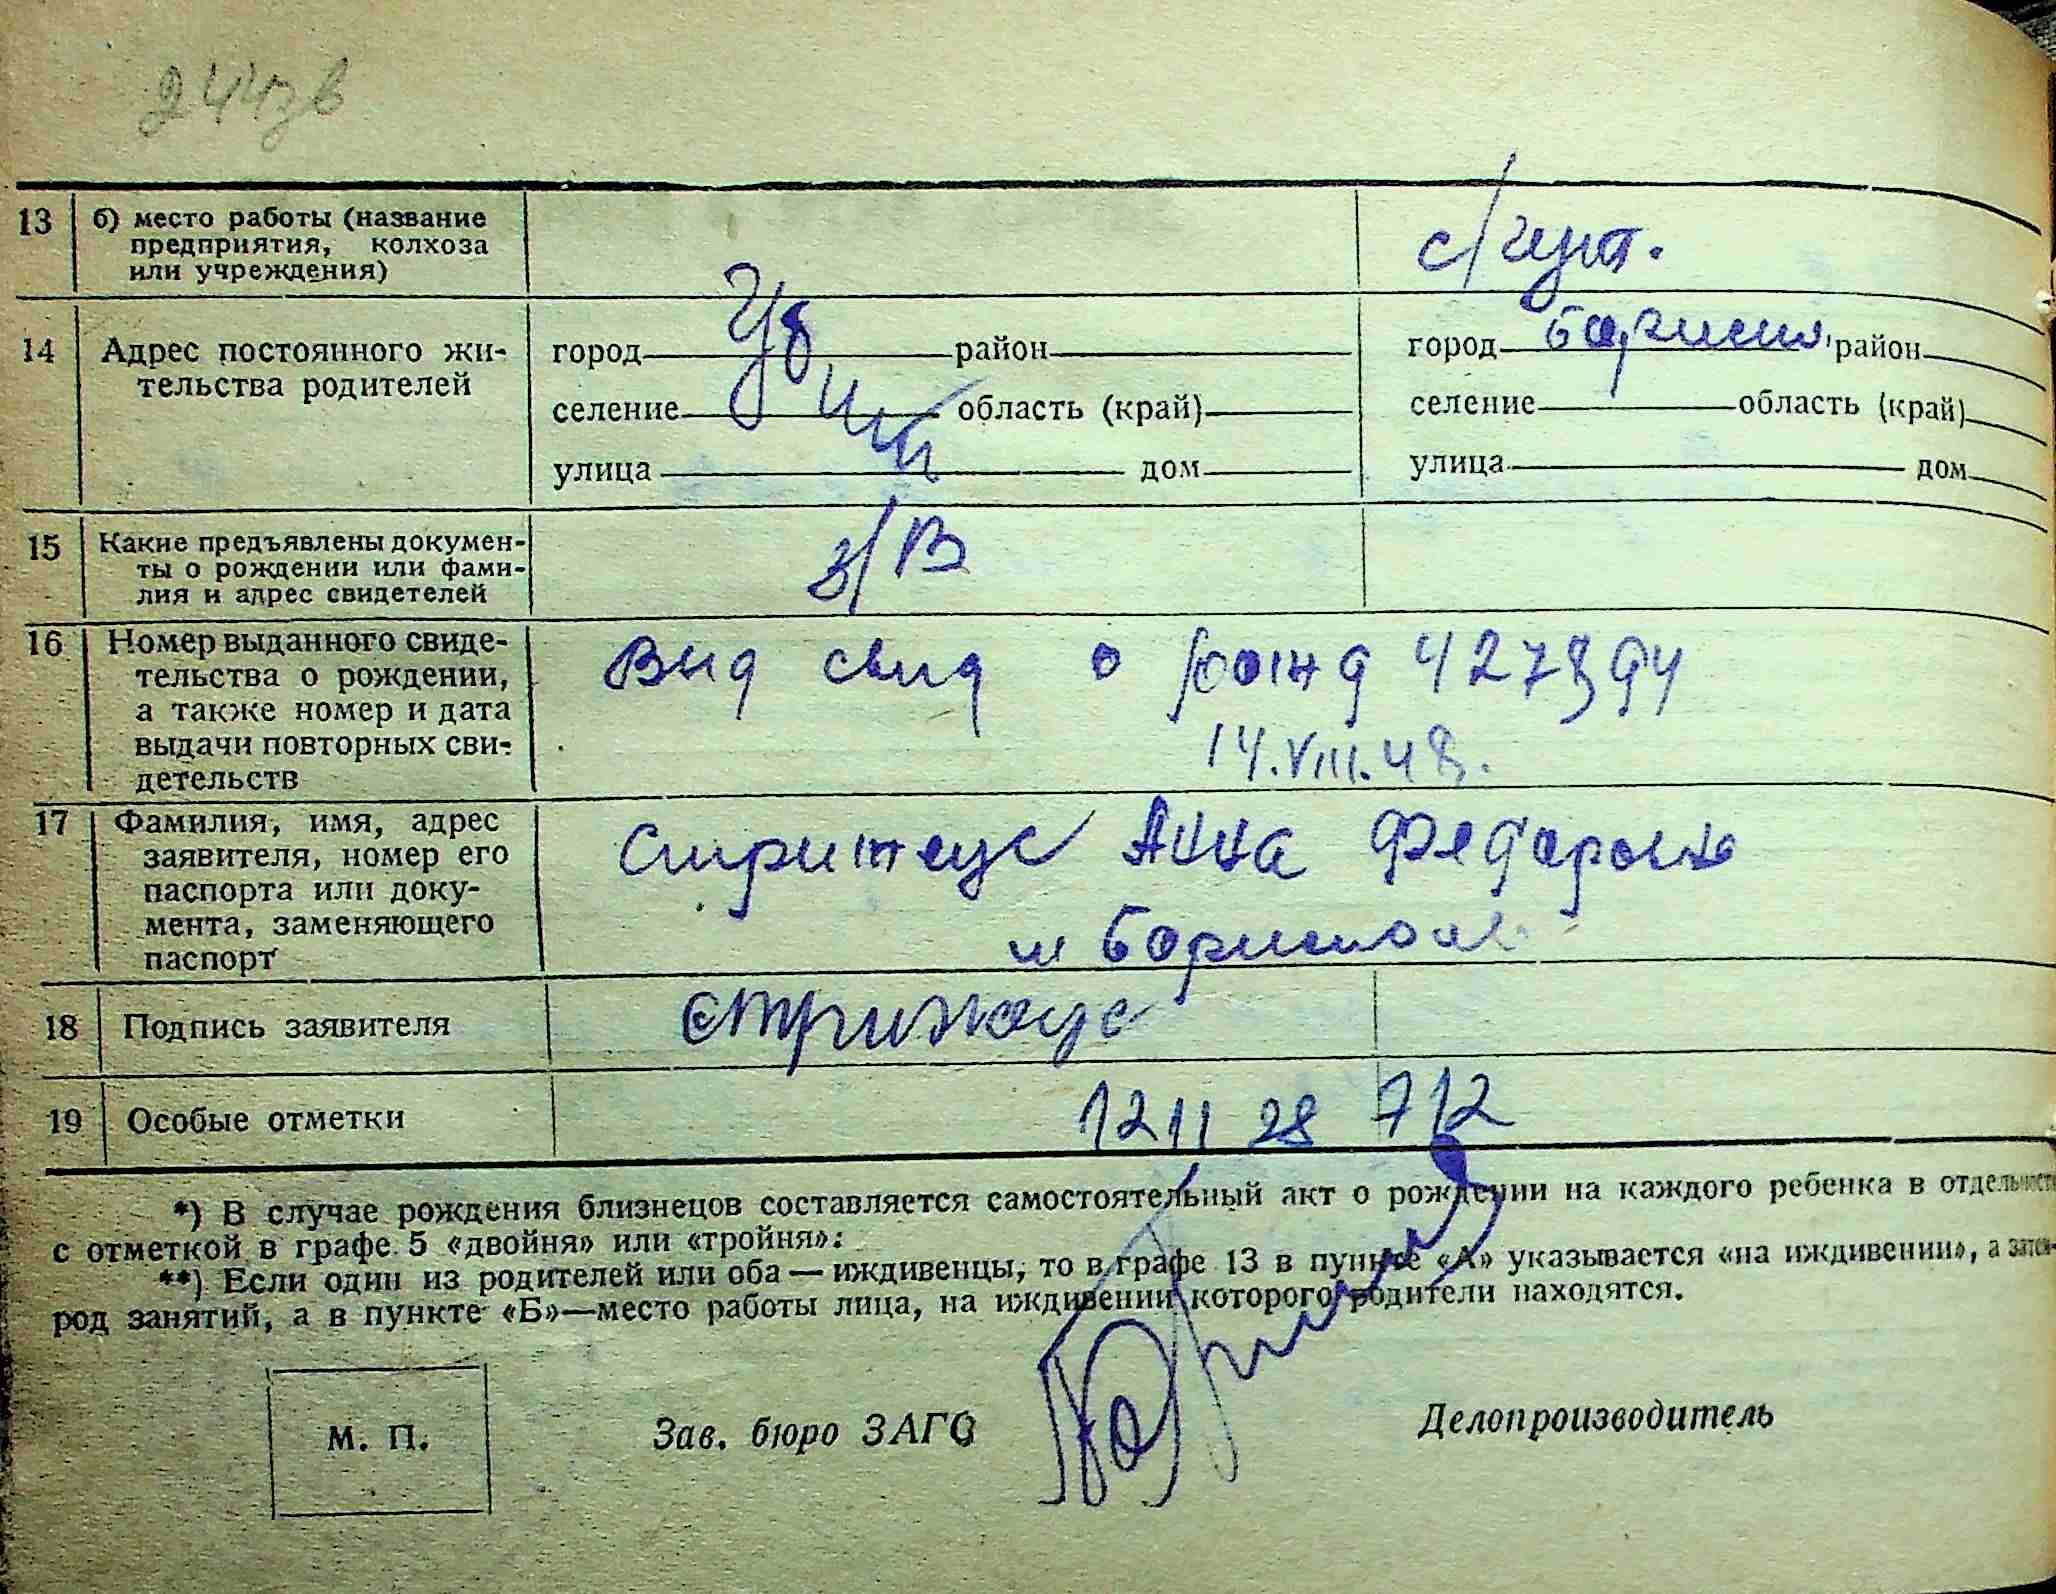 13 б) место работы (название
предприятия, колхоза
или учреждения)
14 Адрес постоянного жи-
тельства родителей
город район город район
селение область (край) селение область (край)
улица дом улица дом
Убит
15 Какие предъявлены докумен-
ты о рождении или фами-
лия и адрес свидетелей
з/В
16 Номер выданного свиде-
тельства о рождении,
а также номер и дата
выдачи повторных сви-
детельств
Выд свид о рожд
14.VIII.48.
17 Фамилия, имя, адрес
заявителя, номер его
паспорта или доку-
мента, заменяющего
паспорт
Стрижеус Анна
18 Подпись заявителя Стрижеус
19 Особые отметки 12 11 28 712
*) В случае рождения близнецов составляется самостоятельный акт о рождении на каждого ребенка в отдельности
с отметкой в графе 5 «двойня» или «тройня».
**) Если один из родителей или оба — иждивенцы, то в графе 13 в пункте «А» указывается «на иждивении», а
род занятий, а в пункте «Б»—место работы лица, на иждивении которого родители находятся.
М. П. Зав. бюро ЗАГС Делопроизводитель